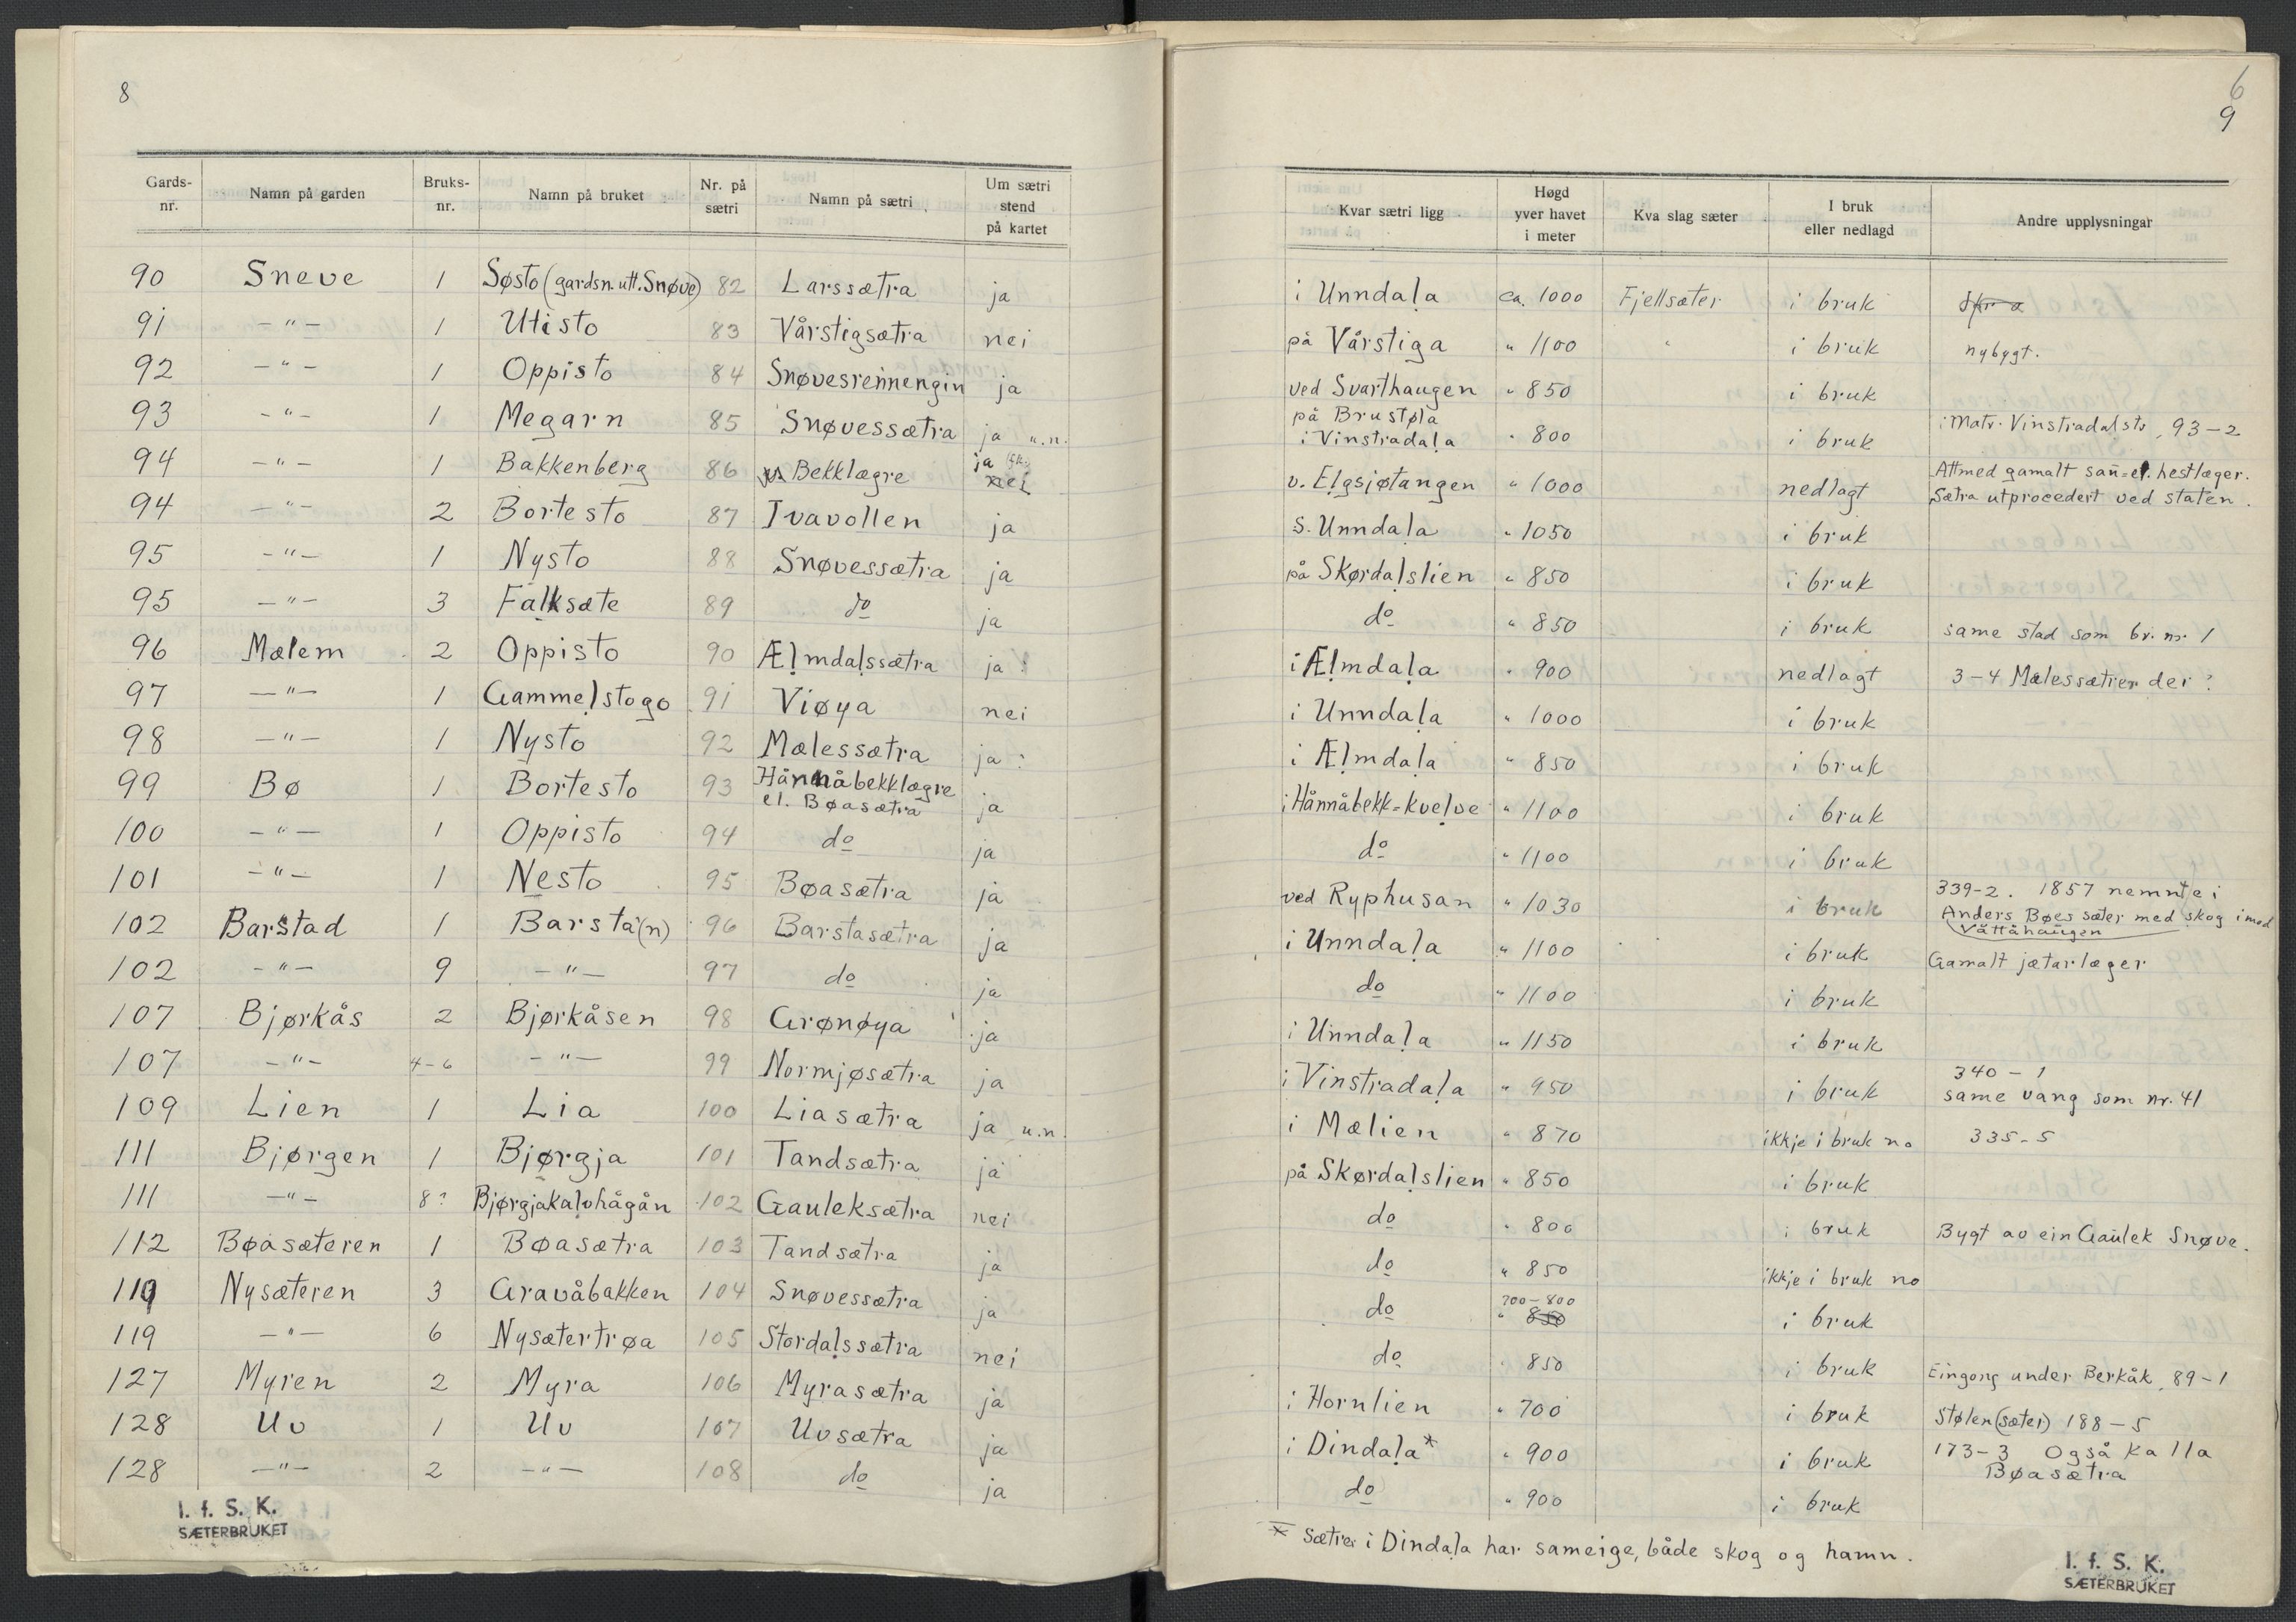 8
Gards-nr. | Namn på garden | Bruks-nr. | Namn på bruket | Nr. på sætri | Namn på sætri | Um sætri stend på kartet
90 | Sneve | 1 | Søsto (gardsn. utt. Snøve) | 82 | Larssætra | ja
91 | -"- | 1 | Utisto | 83 | Vårstigsætra | nei
92 | -"- | 1 | Oppisto | 84 | Snøvesrennengin | ja
93 | -"- | 1 | Megarn | 85 | Snøvessætra | ja u.n.
94 | -"- | 1 | Bakkenberg | 86 | Bekklægre | ja nei
94 | -"- | 2 | Bortesto | 87 | Ivavollen | ja
95 | -"- | 1 | Nysto | 88 | Snøvessætra | ja
95 | -"- | 3 | Falksæte | 89 | do | ja
96 | Mælem | 2 | Oppisto | 90 | Æḷmdaḷssætra | ja ?
97 | -"- | 1 | Gammeḷstogo | 91 | Viøya | nei
98 | -"- | 1 | Nysto | 92 | Mælessætra | ja ?
99 | Bø | 1 | Bortesto | 93 | Hånnåbekklægre el. Bøasætra | ja
100 | -"- | 1 | Oppisto | 94 | do | ja
101 | -"- | 1 | Nesto | 95 | Bøasætra | ja
102 | Barstad | 1 | Barsta(n) | 96 | Barstasætra | ja
102 | -"- | 9 | -"- | 97 | do | ja
107 | Bjørkås | 2 | Bjørkåsen | 98 | Grønøya | ja
107 | -"- | 4-6 | -"- | 99 | Normjøsætra | ja
109 | Lien | 1 | Lia | 100 | Liasætra | ja u.n.
111 | Bjørgen | 1 | Bjørgja | 101 | Tandsætra | ja
111 | -"- | 8? | Bjørgjakaḷvhågån | 102 | Gauleksætra | nei
112 | Bøasæteren | 1 | Bøasætra | 103 | Tandsætra | ja
119 | Nysæteren | 3 | Gravåbakken | 104 | Snøvessætra | ja
119 | -"- | 6 | Nysætertrøa | 105 | Stordaḷssætra | nei
127 | Myren | 2 | Myra | 106 | Myrasætra | ja
128 | Uv | 1 | Uv | 107 | Uvsætra | ja
128 | -"- | 2 | -"- | 108 | do | ja
I. f. S. K.
SÆTERBRUKET
6
9
Kvar sætri ligg | Høgd yver havet i meter | Kva slag sæter | I bruk eller nedlagd | Andre upplysningar
i Unndaḷa | ca. 1000 | Fjellsæter | i bruk
på Vårstiga | " 1100 | " | i bruk | nybygt.
ved Svarthaugen | " 850 | i bruk
på Brustøla i Vinstradaḷa | " 800 | i bruk | i Matr. Vinstradalstr, 93-2
v. Eḷgsjøtangen | " 1000 | nedlagt | Attmed gamalt sau- el. hestlæger. Sætra utprocedert ved staten.
s. Unndaḷa | " 1050 | i bruk
på Skørdaḷslien | " 850 | i bruk
do | " 850 | i bruk | same stad som br. nr. 1
i Æḷmdaḷa | " 900 | nedlagt | 3-4 Mælessætrer der ?
i Unndaḷa | " 1000 | i bruk
i Æḷmdaḷa | " 850 | i bruk
i Hånnåbekk-kveḷve | " 1100 | i bruk
do | " 1100 | i bruk
ved Ryphusan | " 1030 | i bruk | 339-2. 1857 nemnt ei Anders Bøes sæter med skog i med Våttåhaugen
i Unndaḷa | " 1100 | i bruk | Gamalt jætarlæger
do | " 1100 | i bruk
i Unndaḷa | " 1150 | i bruk
i Vinstradaḷa | " 950 | i bruk | 340-1 same vang som nr. 41
i Mælien | " 870 | ikkje i bruk no | 335-5
på Skørdaḷslien | " 850 | i bruk
do | " 800 | i bruk | Bygt av ein Gaulek Snøve.
do | " 850 | ikkje i bruk no
do | " 700-800 850 | i bruk
do | " 850 | i bruk | Eingong under Berkåk, 89-1
i Hornlien | " 700 | i bruk | Stølen (sæter) 188-5
i Dindaḷa* | " 900 | i bruk | 173-3 Også kalla Bøasætra
do | " 900 | i bruk
* Sætrer i Dindaḷa har sameige, både skog og hamn.
I. f. S. K.
SÆTERBRUKET